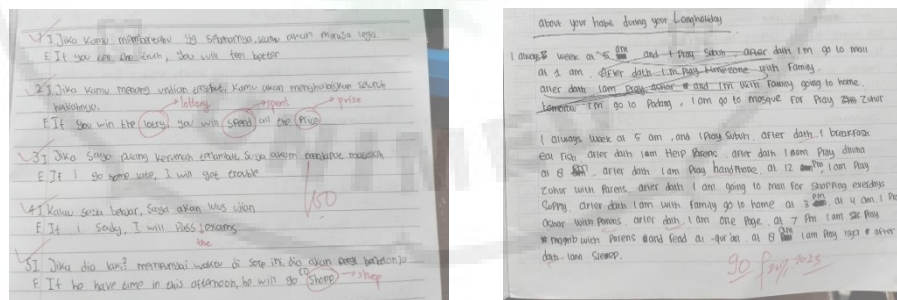 1 I. Jika kamu memberitahu yg sebenarnya, kamu akan merasa lega
E. If you the truth, you will beter
2 I. Jika kamu menang undian tersebut, kamu akan menghabiskan seluruh
hadiahnya.
lottery spent prize
E. If you win the lotry, you will spend all the Price
3 I Jika saya pulang kerumah terlambat saya akan
E. If I go home late, I will get trouble
4 I. Kalau saya belajar, saya akan lulus ujian
E. If I Study, I will Pass exams
the
150
5 I. Jika dia memiliki waktu di sore ini, dia akan berbelanja
E. If he have time in this afternoon, he will go to Shopp
shop
about your habie during your Longholiday
I always week at 5 am and I Play Subuh, after dath I'm go to mall
at 1 am. After dath I.m Play timezone with Family.
after dath Iam Pray achar and I'm with Family going to home.
I'm go to Padang, I am go to mosque For Play Zuhur
I always week at 5 am, and I Play Subuh, after dath, I breakfase
eat Fish, after dath Iam Help Parens, after dath I am Play
at 8 , after dath I am Play handphone, at 12 Pm, I am Play
Zuhur with Parens, after dath I am going to mall For Shopping everdays
Suppy, after dath I am with family go to home at 3 pm, at 4 am I P
achar with Parens, after dath, I am one Page, at 7 Pm I am Play
magrib with Parens and read al-qur'an, at 8 am I am Play isya after
dath Iam Sleepp.
90